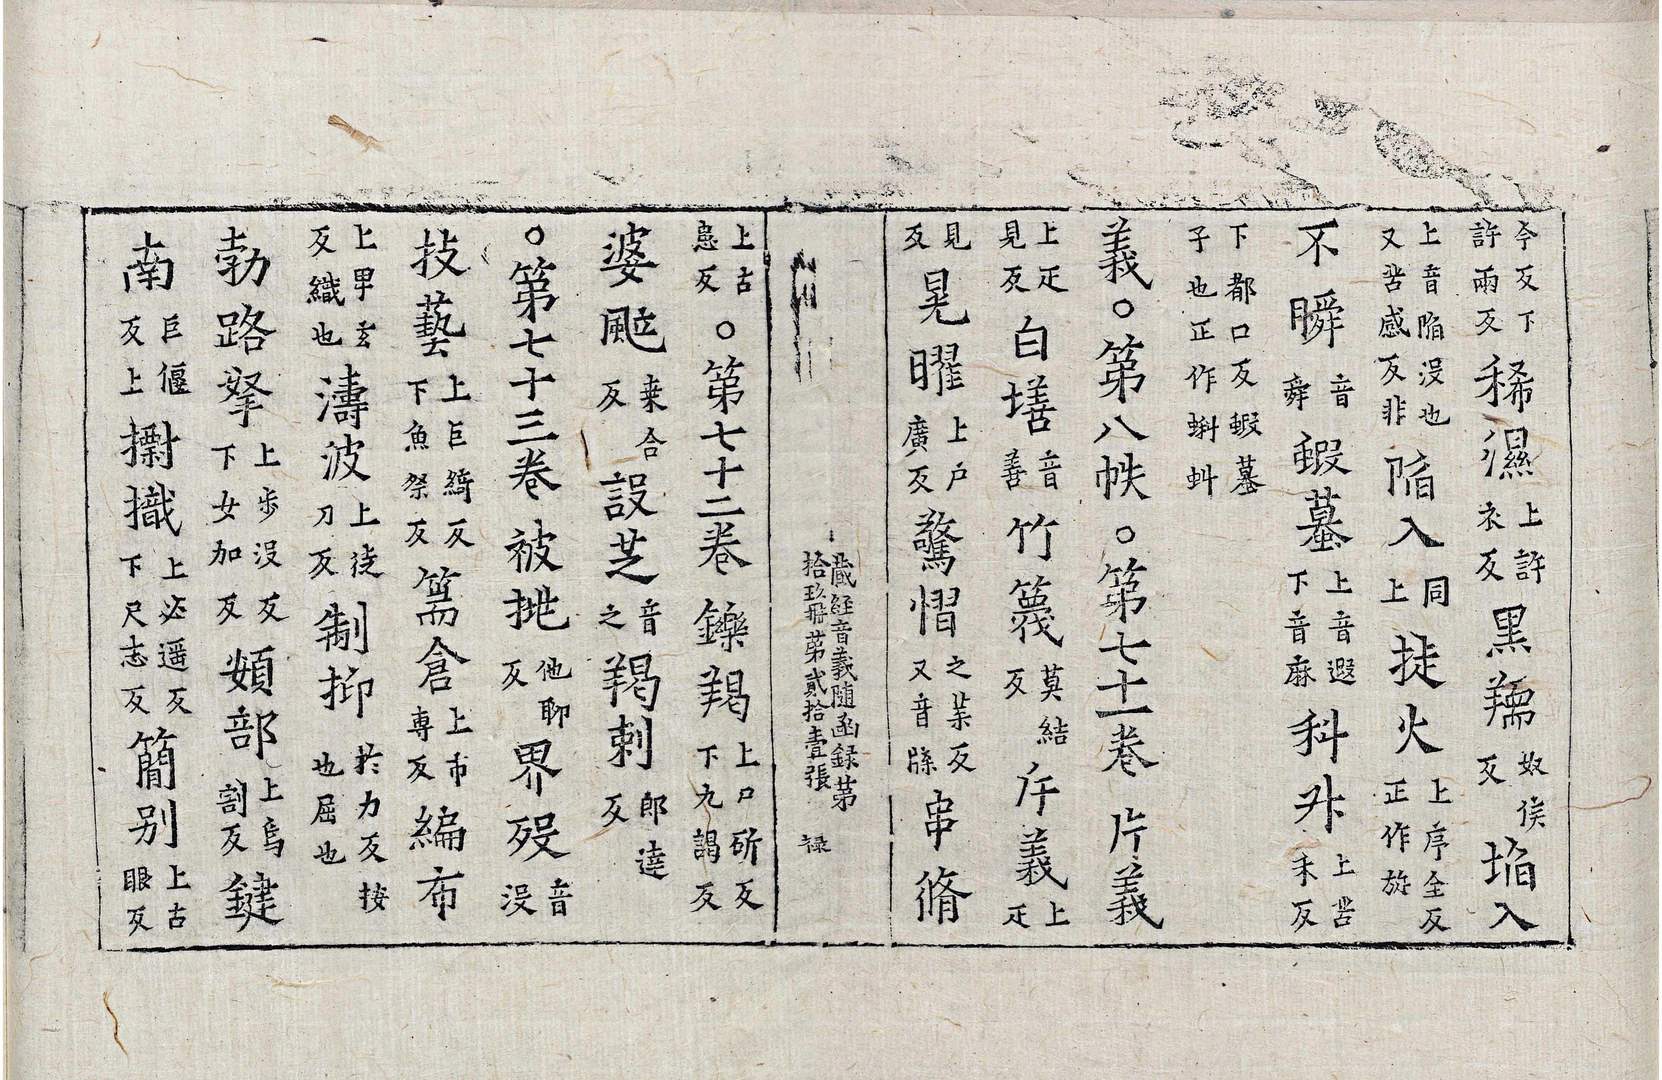 今反下許兩反稀濕上許衣反黑羺奴侯反埳入
上音陥没也又苦感反非䧟入同上㨗火上序全反正作旋
不瞬音舜蝦蟇上音遐下音麻科斗上苦禾反
下都口反蝦蟇子也正作蝌蚪
義○第八帙○第七十一卷片義
上疋見反白墡音善竹篾莫結反斤義上疋
見反晃曜上户廣反驚慴之葉反又音牒串脩
藏経音義随函録第
拾玖冊苐貳拾壹張 禄
上古患反○第七十二卷鑠羯上口斫反下九謁反
婆颯桒合反設芝音之羯刺郎達反
○第七十三卷被挑他聊反界歿音没
技藝上巨綺反下魚祭反篅倉上市専反編布
上畢玄反織也濤波上徒刀反制抑扵力反按也屈也
勃路拏上步没反下女加反頞部上烏割反鍵
南巨偃反上㩧撠上必遥反下尺志反簡别上古眼反